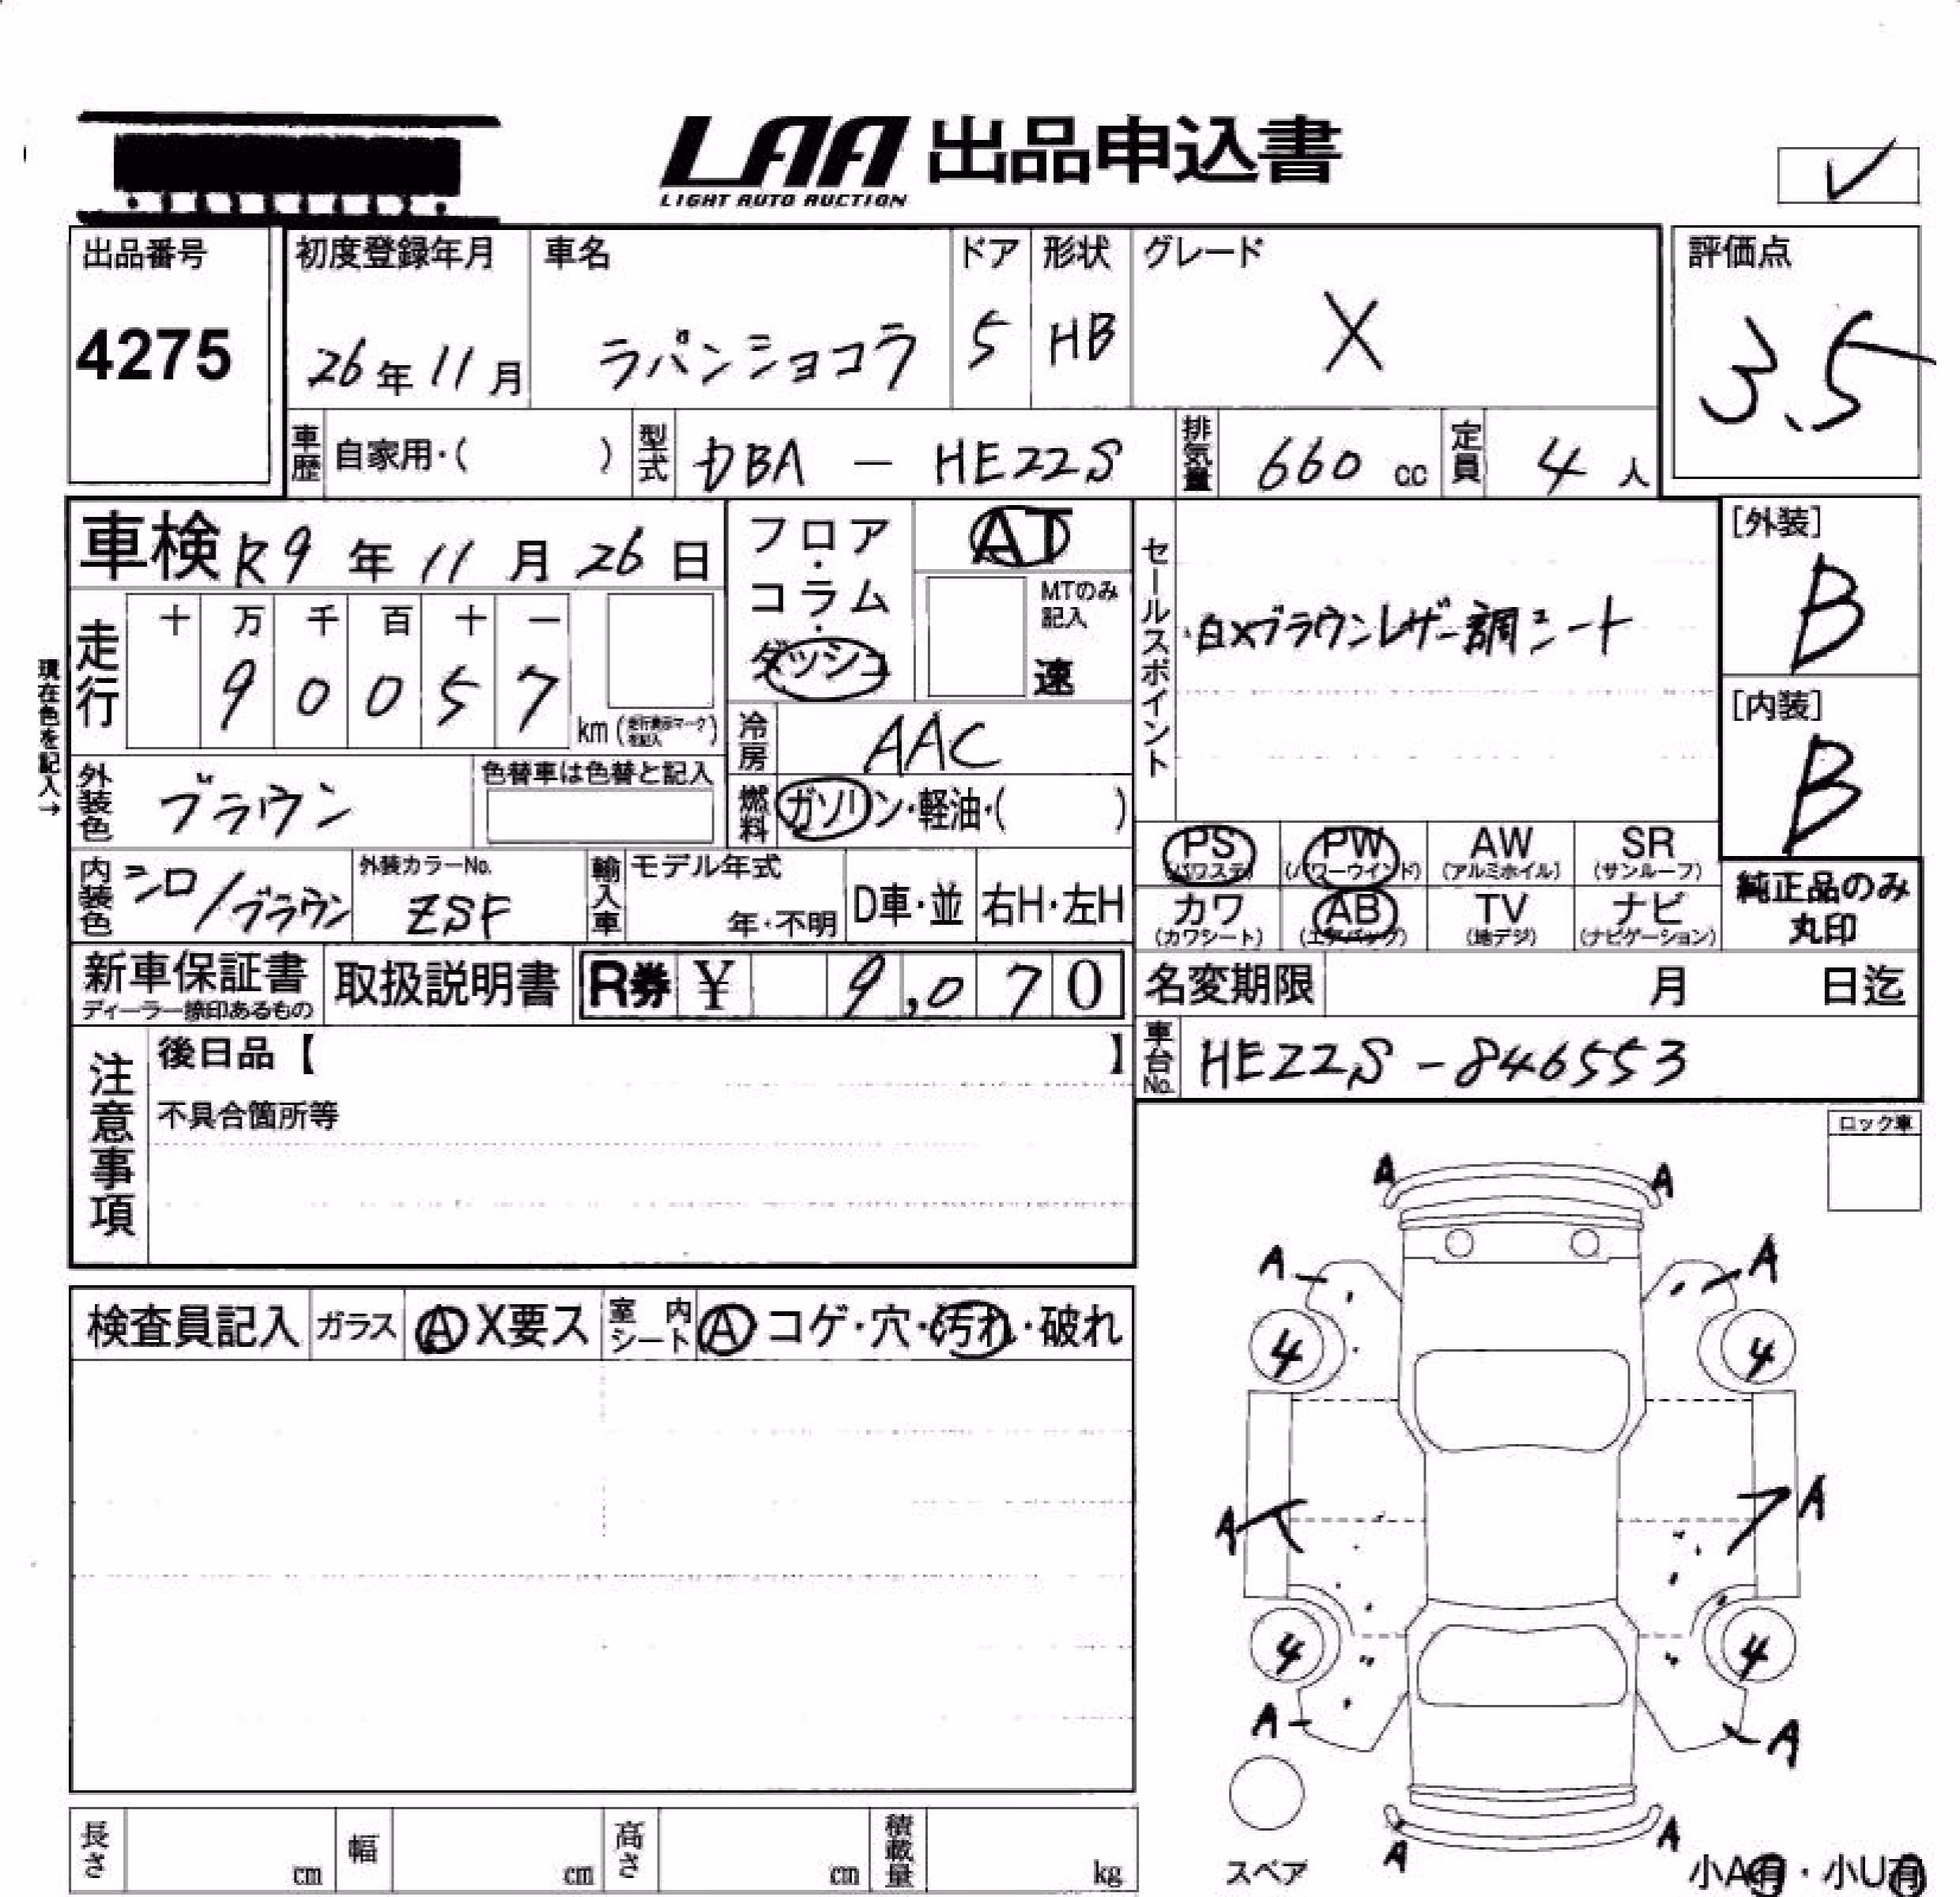 LAA 出品申込書
LIGHT AUTO AUCTION
出品番号 初度登録年月 車名 ドア 形状 グレード 評価点
4275 26年11月 ラパンショコラ 5 HB X 3.5
車歴 自家用・( ) 型式 DBA - HE22S 排気量 660 cc 定員 4 人
車検 R9年11月26日 フロア・コラム・ダッシュ AT
MTのみ記入 速
セールスポイント 白×ブラウンレザー調シート
[外装] B
[内装] B
現在色を記入→
走行 十 万 千 百 十 一
9 0 0 5 7 km (走行表示マークを記入)
冷房 AAC
外装色 ブラウン 色替車は色替と記入
燃料 ガソリン・軽油・( )
内装色 シロ/ブラウン 外装カラーNo. ZSF 輸入車 モデル年式 年・不明 D車・並 右H・左H
PS (パワステ) PW (パワーウインド) AW (アルミホイル) SR (サンルーフ)
カワ (カワシート) AB (エアバッグ) TV (地デジ) ナビ (ナビゲーション)
純正品のみ丸印
新車保証書 ディーラー捺印あるもの 取扱説明書 R券 ¥ 9,070
名変期限 月 日迄
車台No. HE22S-846553
注意事項 後日品【 】
不具合箇所等
ロック車
検査員記入 ガラス A X要ス 室内シート A コゲ・穴・汚れ・破れ
A A
A A
4 4
A A
4 4
A A
A A
スペア
小A有・小U有
長さ cm 幅 cm 高さ cm 積載量 kg